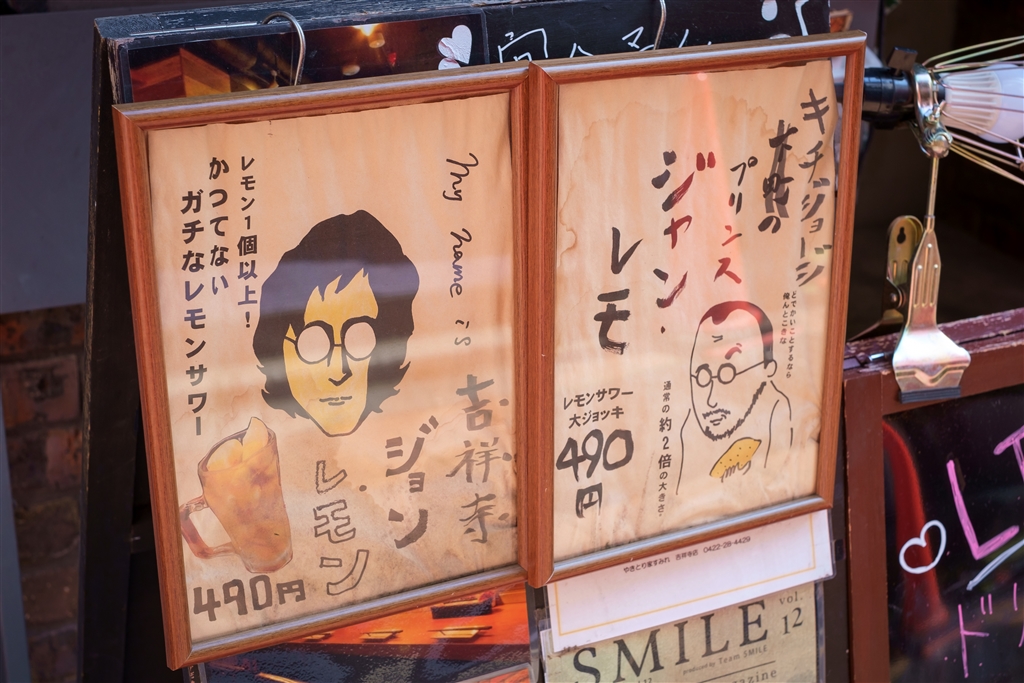 My name is
吉祥寺
ジョン・
レモン
レモン1個以上!
かつてない
ガチなレモンサワー
490円
キチジョージ
大衆の
プリンス
ジャン・
レモ
どでかいことするなら
俺んとこきな
通常の約2倍の大きさ。
レモンサワー
大ジョッキ
490
円
やきとり家すみれ 吉祥寺店 0422-28-4429
SMILE
vol.
12
produced by Team SMILE